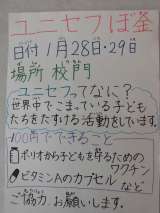 ユニセフぼ金
日付 1月28日・29日
場所 校門
ユニセフってなに?
世界中でこまっている子ども
たちをたすける活動をしています。
100円でできること
ポリオから子どもを守るための
ワクチン
ビタミンAのカプセル など
ご協力、お願いします。